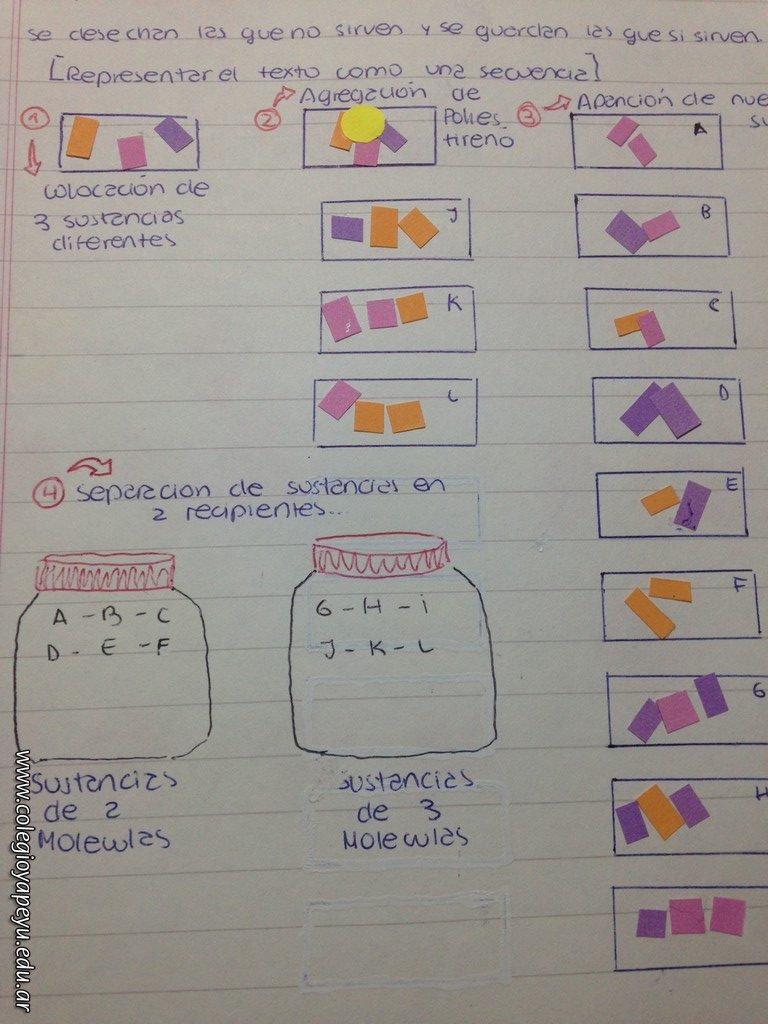 se desechan las que no sirven y se guardan las que si sirven.
[Representar el texto como una secuencia]
1
colocación de
3 sustancias
diferentes
2 Agregación de
Polies
tireno
3 Aparición de nue
su
A
B
C
D
E
F
G
H
J
K
L
4 separacion de sustancias en
2 recipientes...
A - B - C
D - E - F
Sustancias
de 2
Moleculas
G - H - i
J - K - L
sustancias
de 3
Moleculas
www.colegioyapeyu.edu.ar